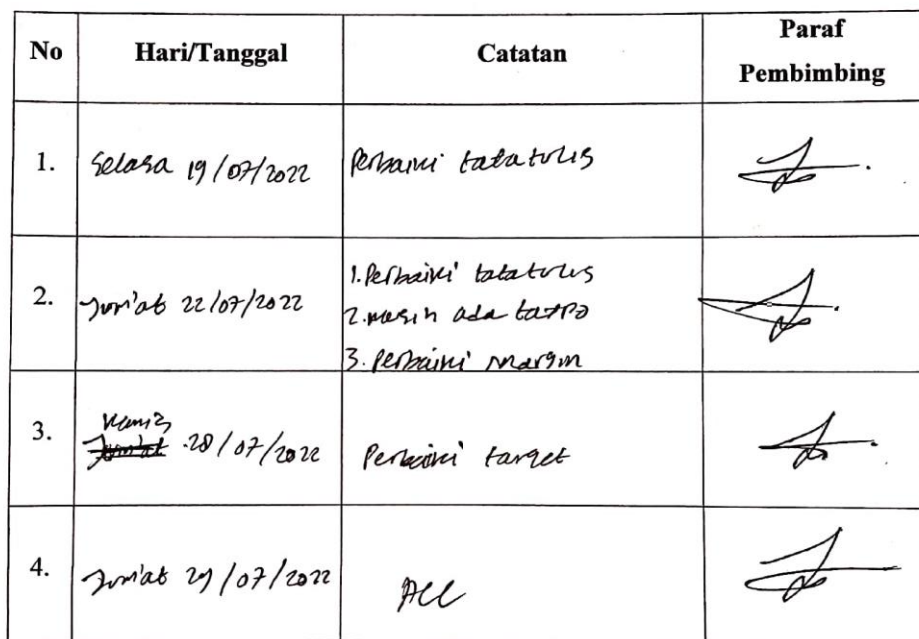 No Hari/Tanggal Catatan Paraf Pembimbing
1. Selasa 19/07/2022 Perbaiki tatatulis
2. Jum'at 22/07/2022 1. Perbaiki tatatulis
2. masih ada
3. Perbaiki margin
3. Kamis 28/07/2022 Perbaiki target
4. Jum'at 29/07/2022 ACC